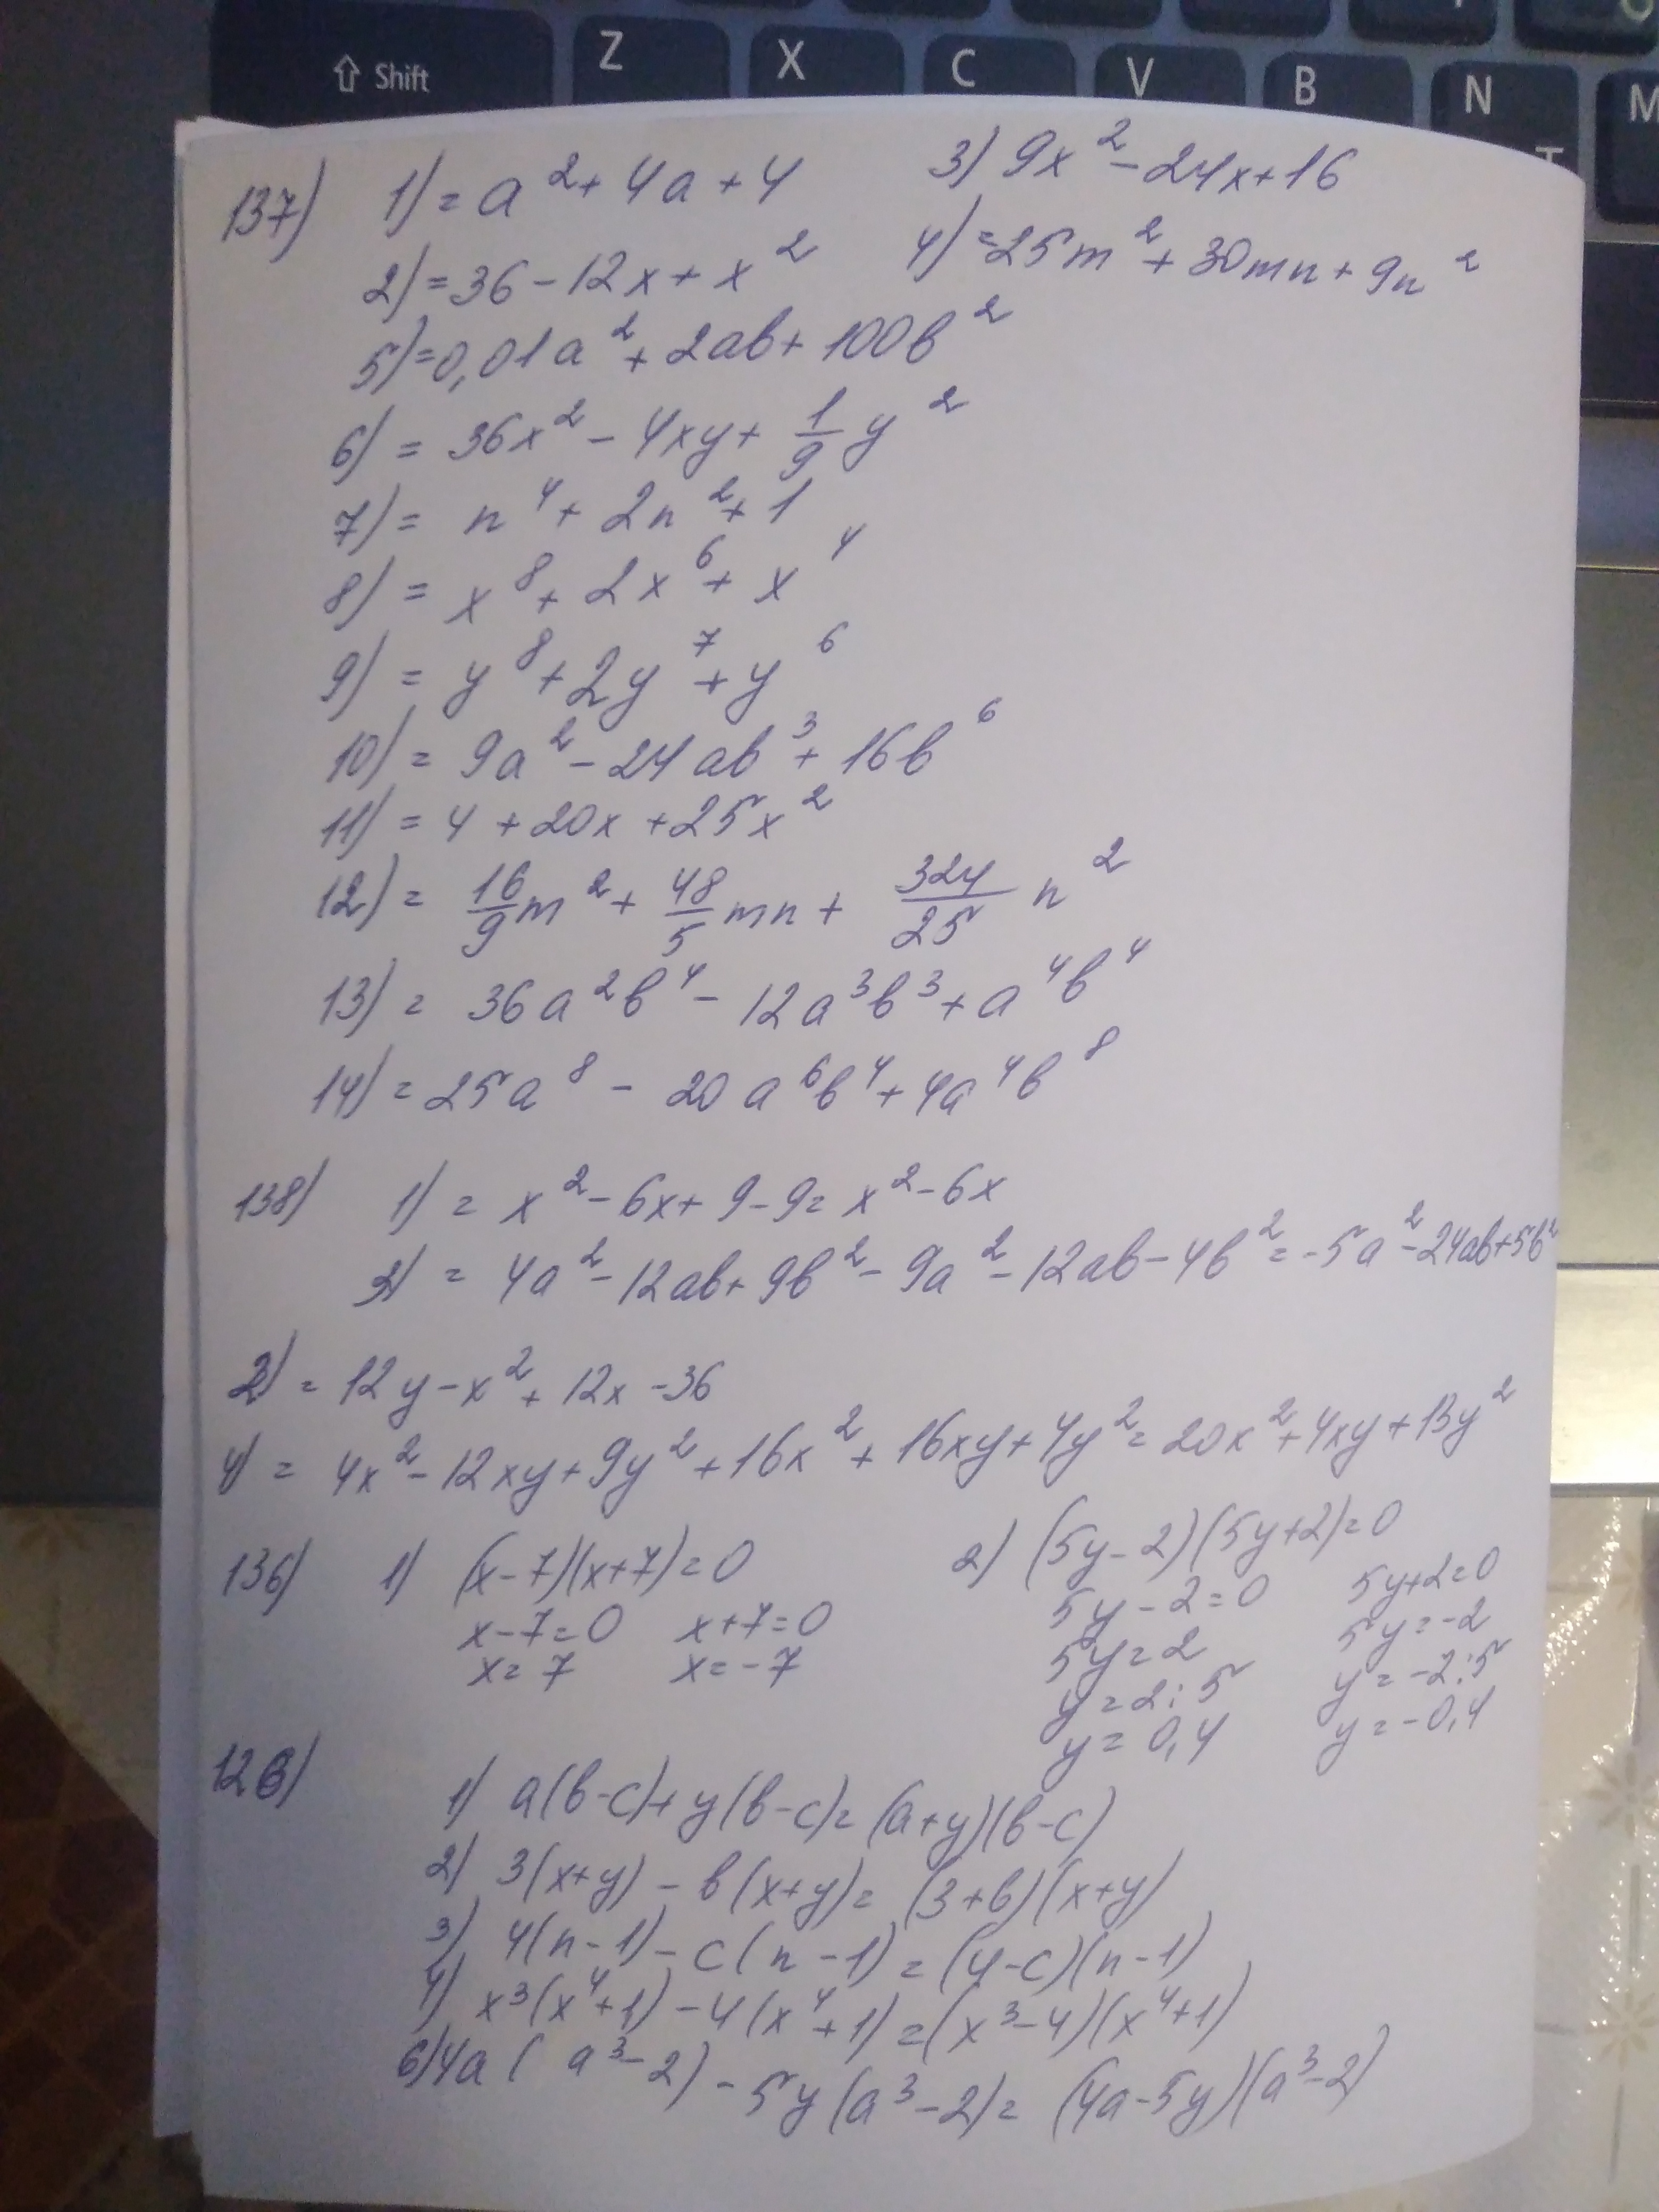 Shift Z X C V B N M
137) 1) = a² + 4a + 4 3) 9x² - 24x + 16
2) = 36 - 12x + x² 4) = 25m² + 30mn + 9n²
5) = 0,01a² + 2ab + 100b²
6) = 36x² - 4xy + 1/9 y²
7) = n⁴ + 2n² + 1
8) = x⁸ + 2x⁶ + x⁴
9) = y⁸ + 2y⁷ + y⁶
10) = 9a² - 24ab³ + 16b⁶
11) = 4 + 20x + 25x²
12) = 16/9 m² + 48/5 mn + 324/25 n²
13) = 36a²b⁴ - 12a³b³ + a⁴b⁴
14) = 25a⁸ - 20a⁶b⁴ + 4a⁴b⁸
138) 1) = x² - 6x + 9 - 9 = x² - 6x
3) = 4a² - 12ab + 9b² - 9a² - 12ab - 4b² = -5a² - 24ab + 5b²
2) = 12y - x² + 12x - 36
4) = 4x² - 12xy + 9y² + 16x² + 16xy + 4y² = 20x² + 4xy + 13y²
136) 1) (x-7)(x+7) = 0 2) (5y-2)(5y+2) = 0
x-7=0 x+7=0 5y-2=0 5y+2=0
x=7 x=-7 5y=2 5y=-2
y=2:5 y=-2:5
y=0,4 y=-0,4
126) 1) a(b-c)+y(b-c)=(a+y)(b-c)
2) 3(x+y)-b(x+y)=(3+b)(x+y)
3) 4(n-1)-c(n-1)=(4-c)(n-1)
4) x³(x⁴+1)-4(x⁴+1)=(x³-4)(x⁴+1)
6) 4a(a³-2)-5y(a³-2)=(4a-5y)(a³-2)